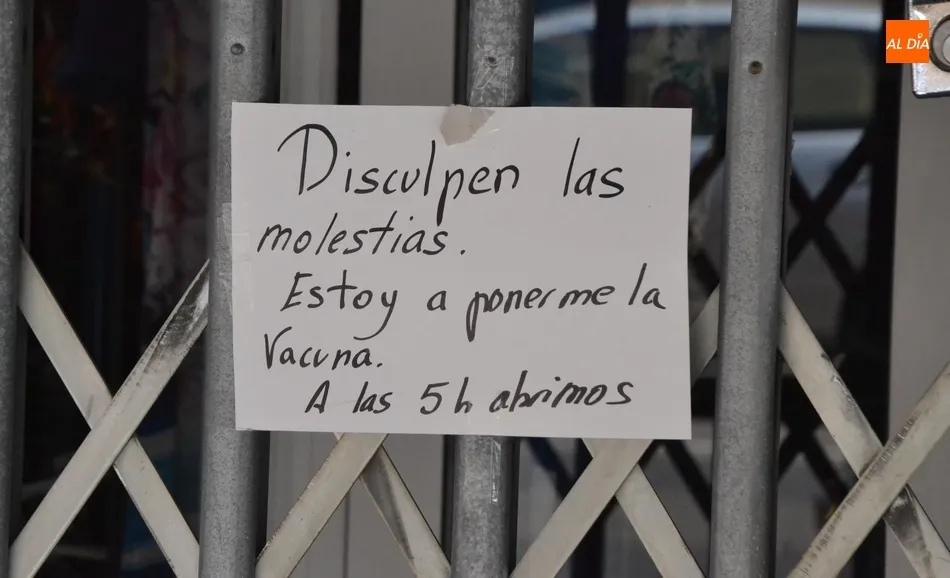 AL DÍA
Disculpen las
molestias.
Estoy a ponerme la
Vacuna.
A las 5h abrimos